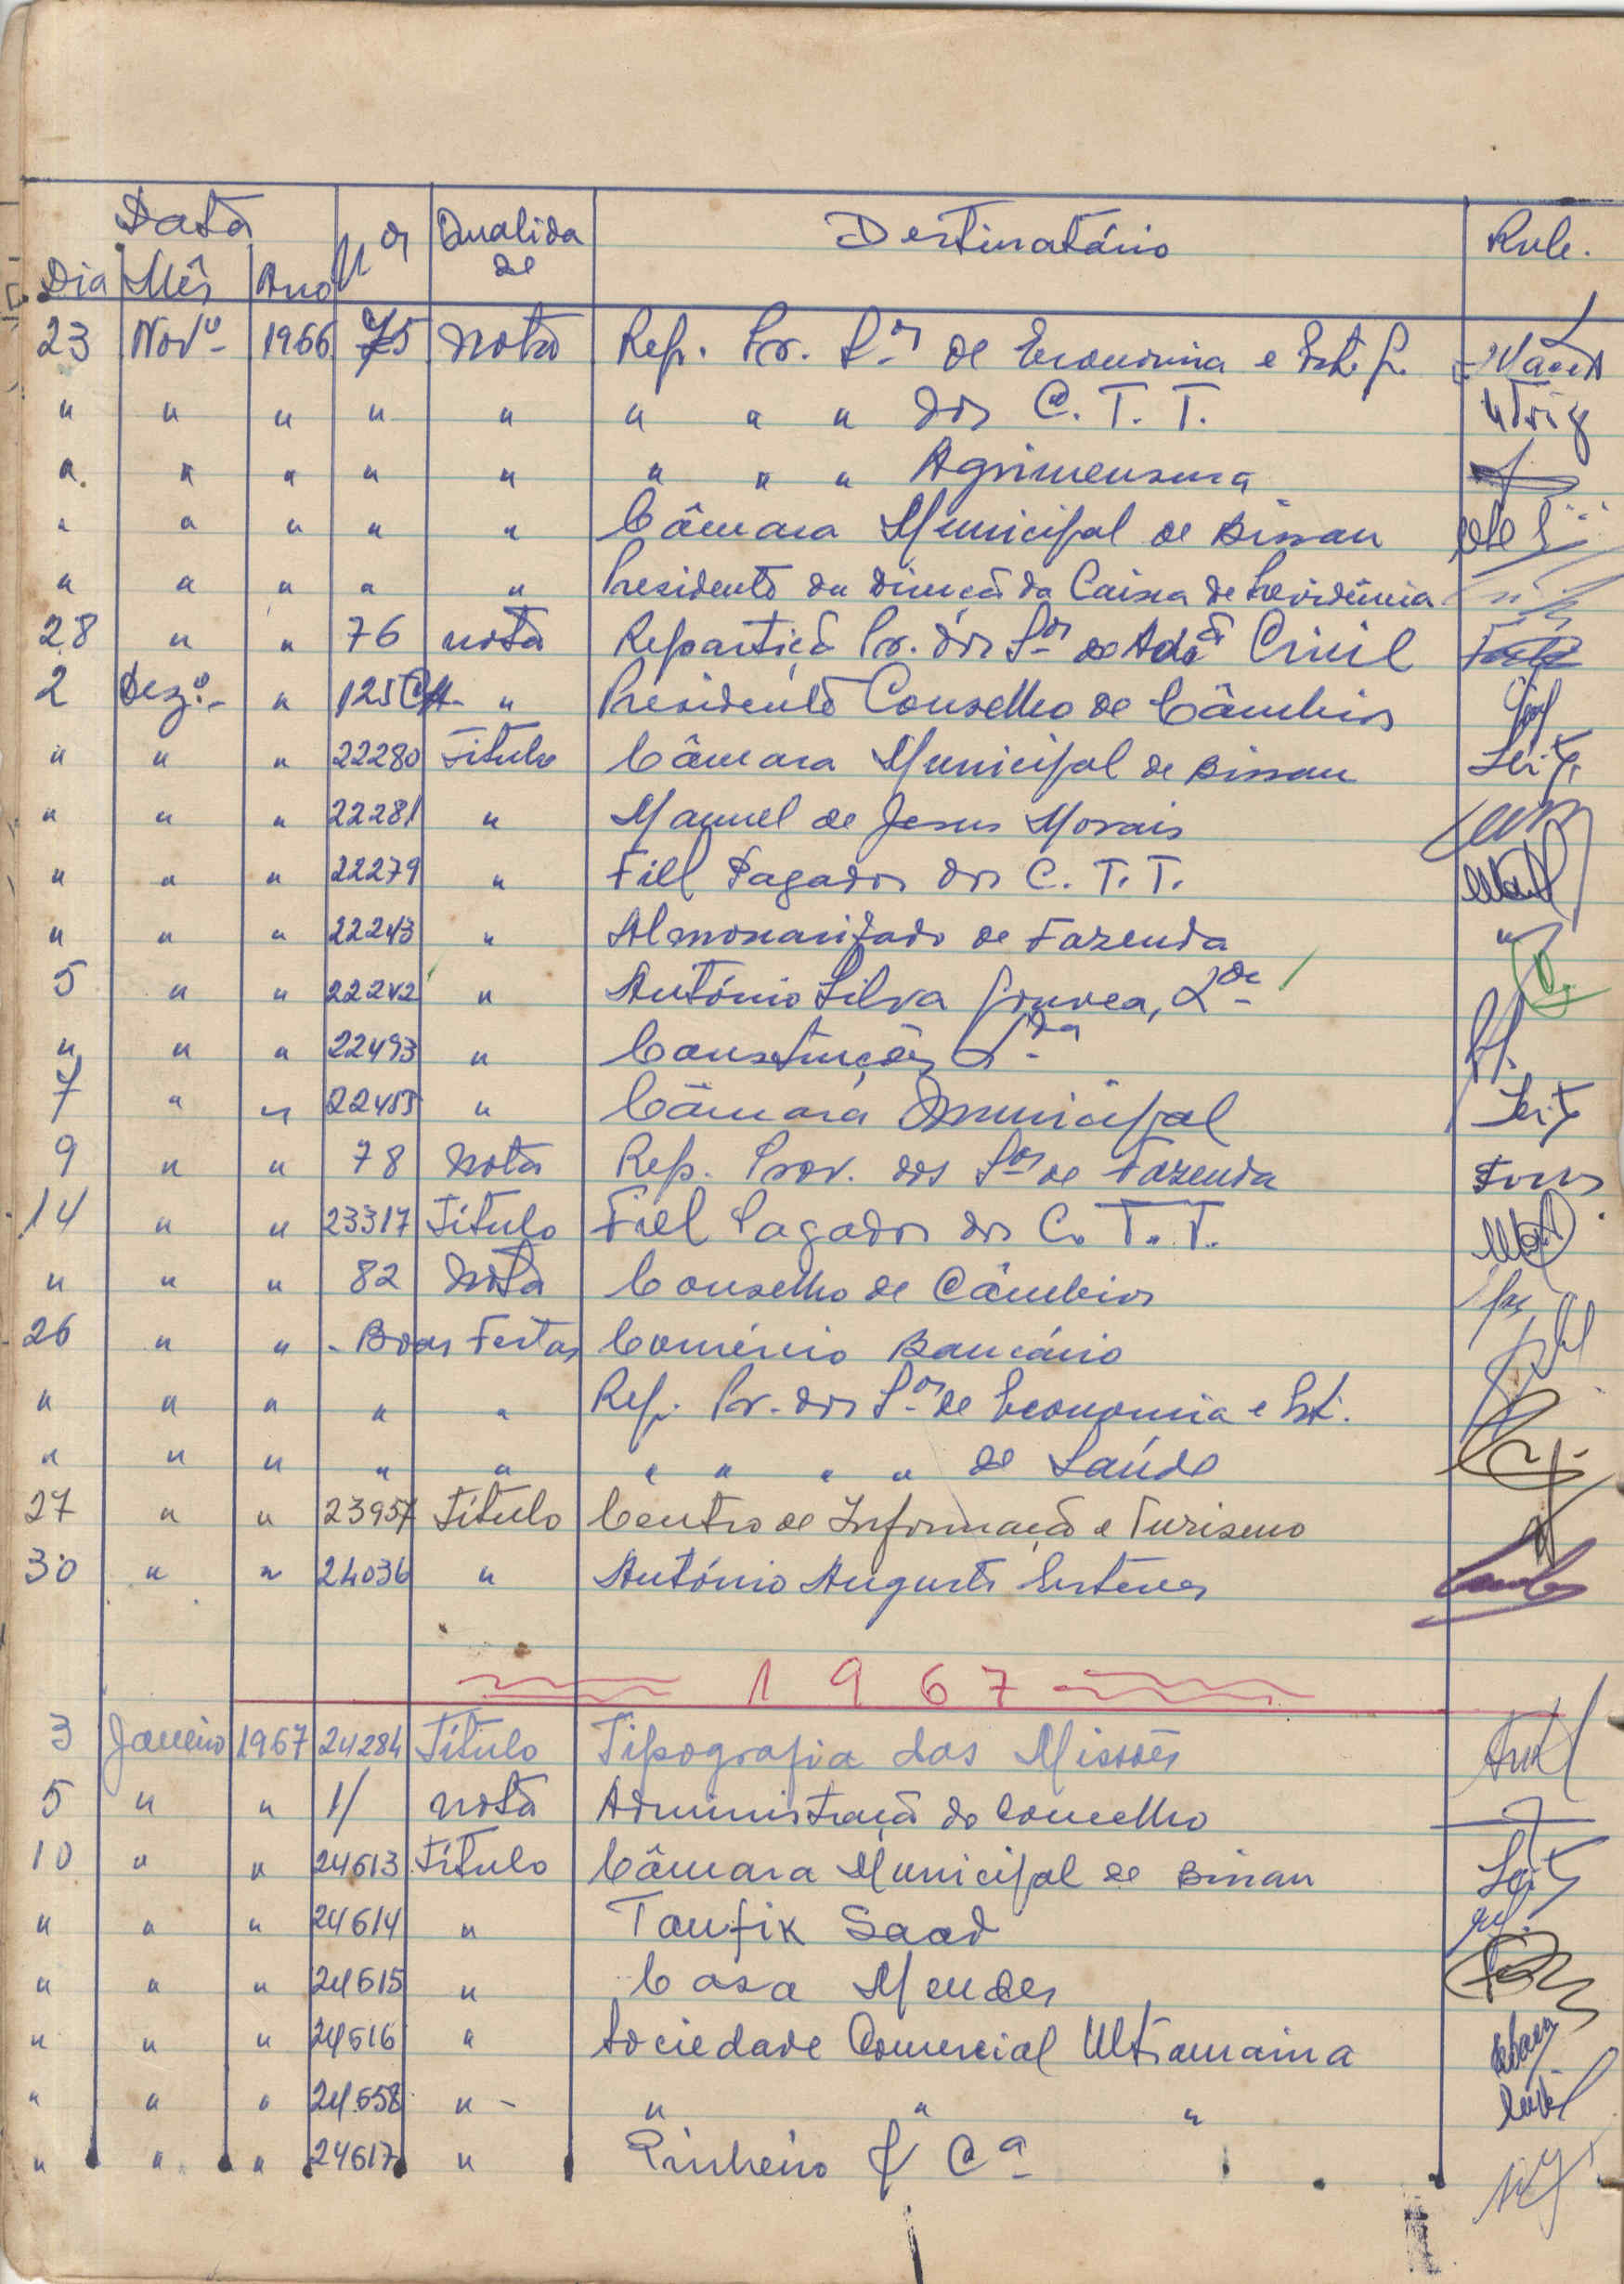 Data Nos Qualidade Destinatário Rub.
Dia Mês Ano
23 Novº 1966 75 Nota Rep. Pr. Sos de Economia e Est. G.
" " " " " " " " dos C. T. T.
" " " " " " " " Agrimensura
" " " " " Câmara Municipal de Bissau
" " " " " Presidente da Direcçã da Caixa de Previdência
28 " " 76 nota Repartiçã Pr. dos Sos de Admã Civil
2 Dezº " 125 " Presidente Conselho de Câmbios
" " " 22280 Título Câmara Municipal de Bissau
" " " 22281 " Manuel de Jesus Morais
" " " 22279 " Fiel Pagador dos C. T. T.
" " " 22243 " Almoxarifado de Fazenda
5 " " 22242 " António Silva Gouvea, Lda
" " " 22493 " Construções Lda
7 " " 22485 " Câmara Municipal
9 " " 78 Nota Rep. Prov. dos Sos de Fazenda
14 " " 23317 Título Fiel Pagador dos C. T. T.
" " " 82 Nota Conselho de Câmbios
26 " " - Boas Festas Comércio Bancário
" " " " " Rep. Pr. dos Sos de Economia e Est.
" " " " " " " " " de Saúde
27 " " 23957 Título Centro de Informação e Turismo
30 " " 24036 " António Augusto Esteves
1967
3 Janeiro 1967 24284 Título Tipografia das Missões
5 " " 1/ nota Administraçã do Concelho
10 " " 24613 Título Câmara Municipal de Bissau
" " " 24614 " Taufik Saad
" " " 24615 " Casa Mendes
" " " 24616 " Sociedade Comercial Ultramarina
" " " 24658 " - " " "
" " " 24617 " Pinheiro & Cª